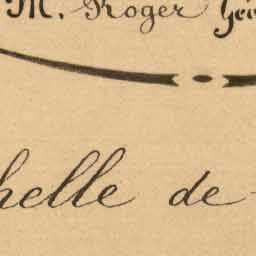 M. Roger Gér
helle de